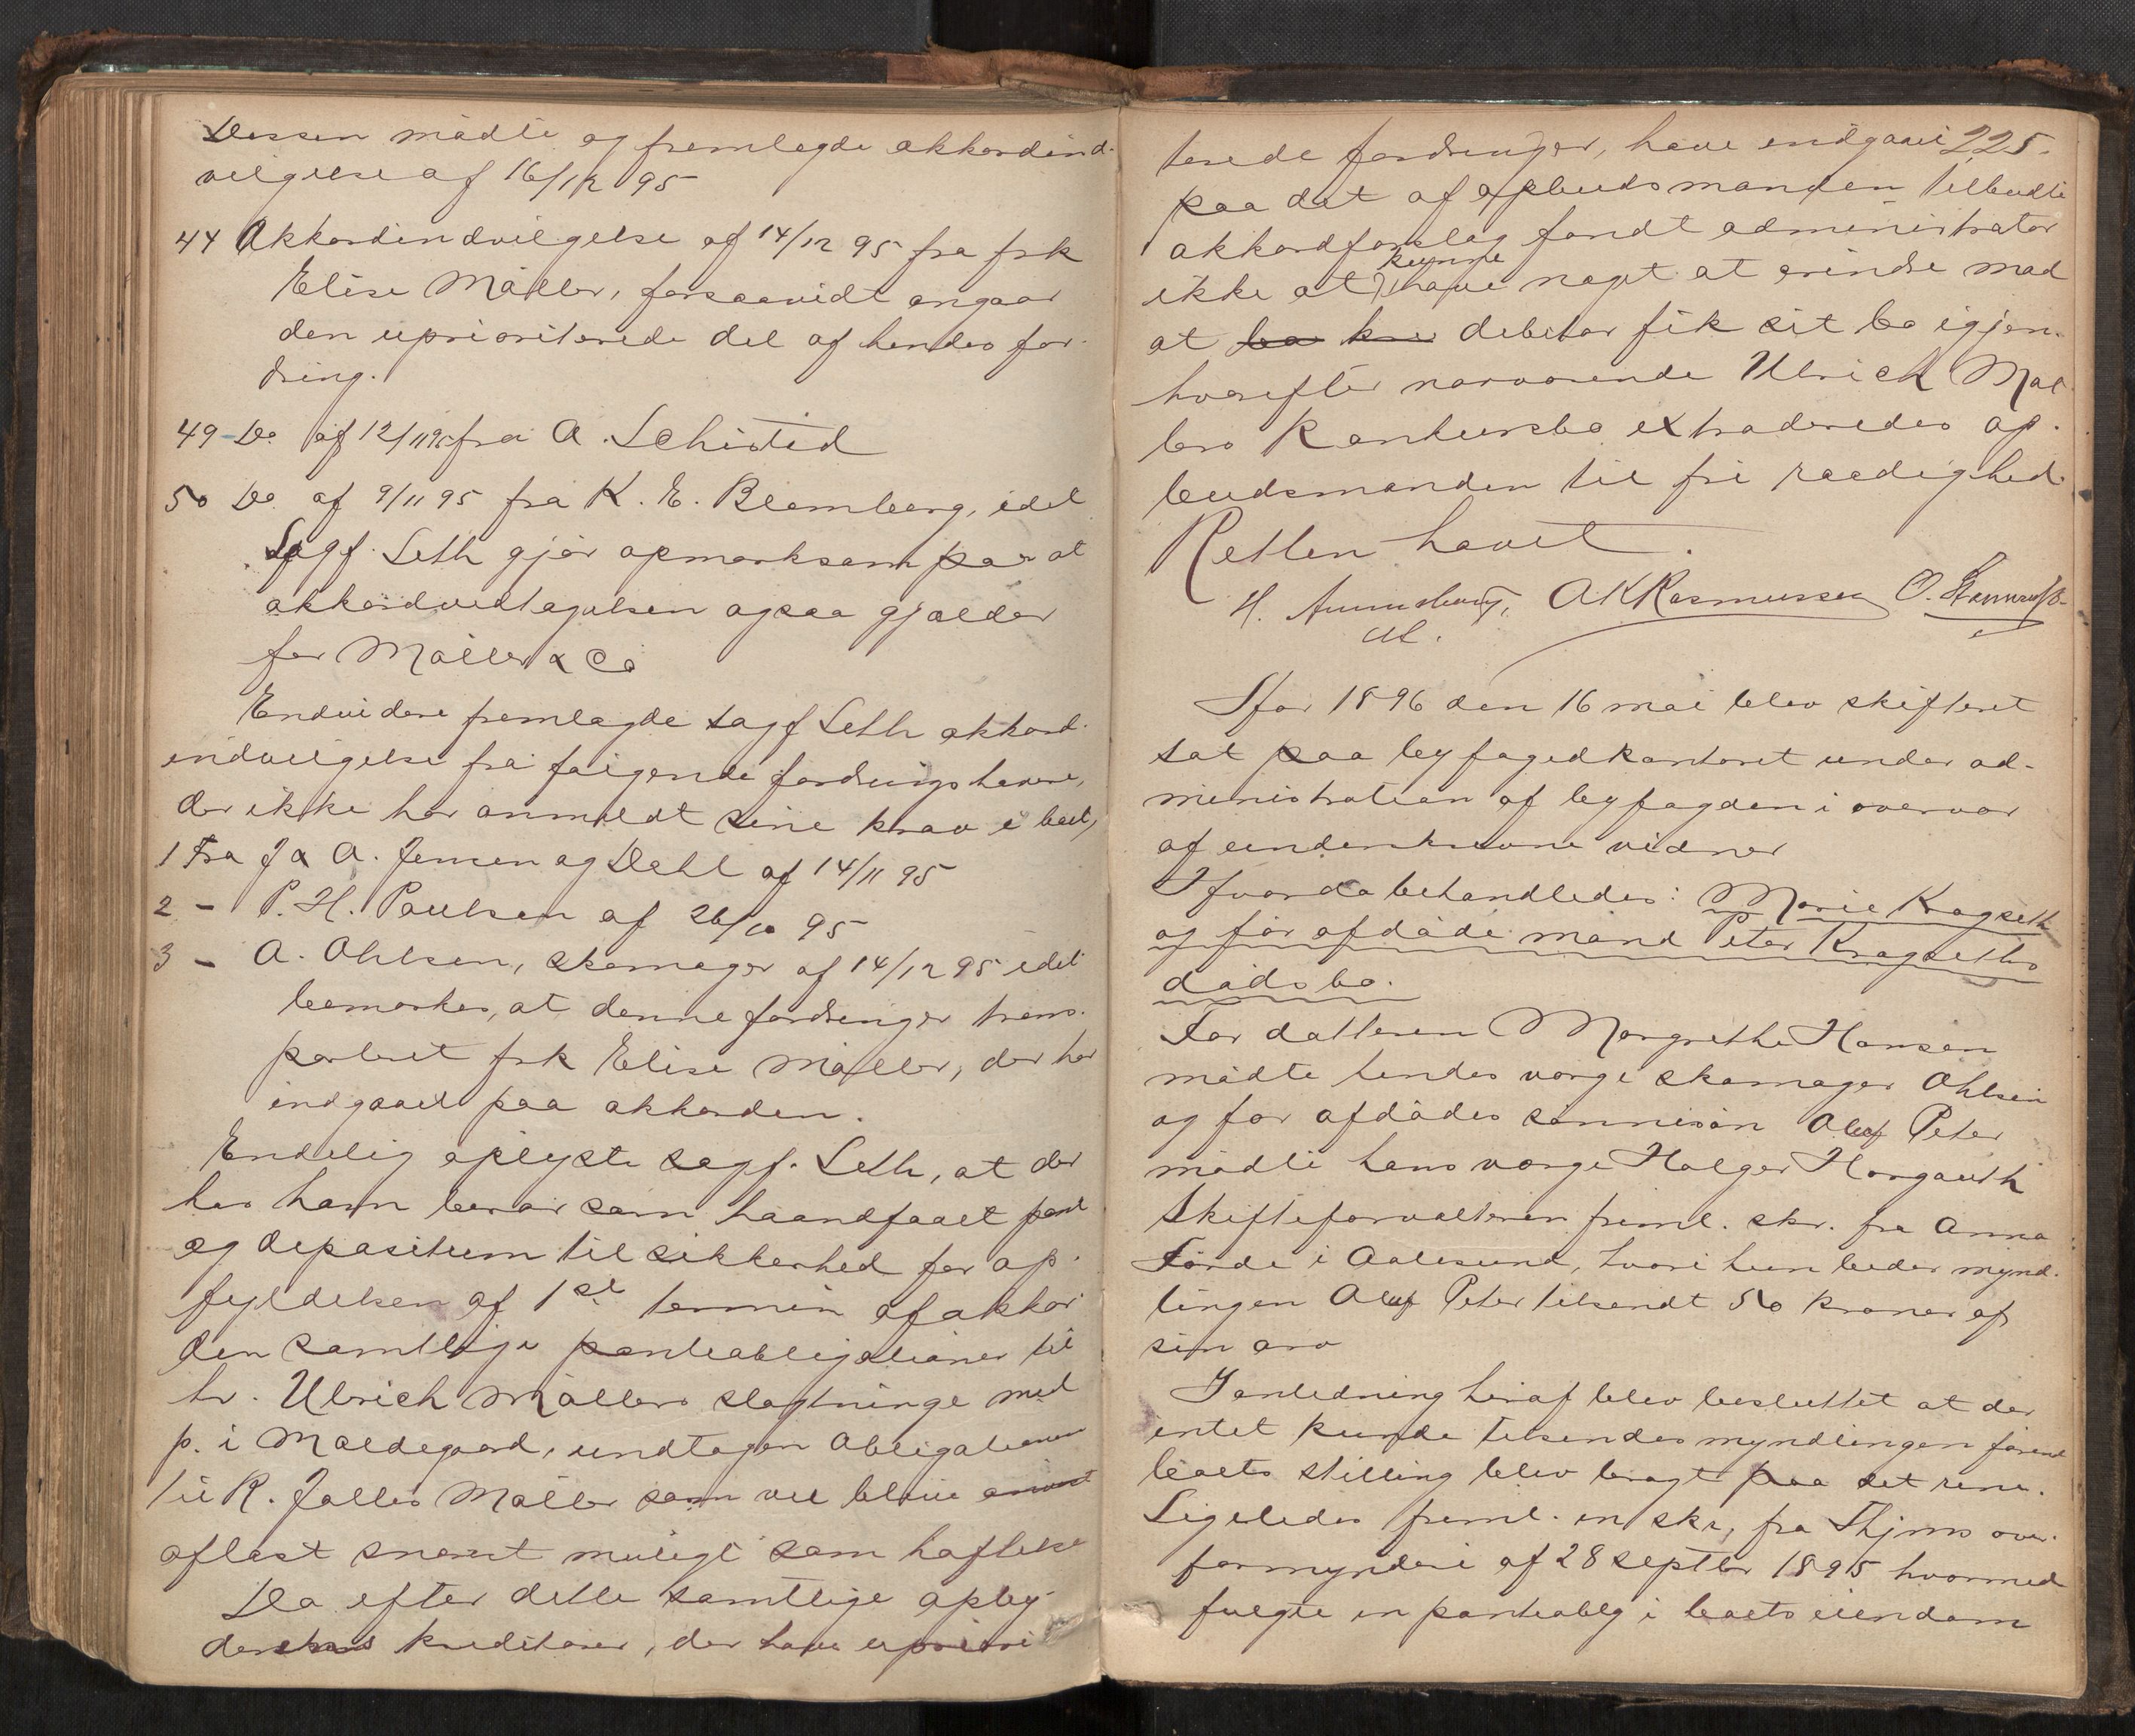 Dessen mødte og fremlagde akkordind-
vilgelse af 16/12 95
44 Akkordindvilgelse af 14/12 95 fra frk
Elise Møller, forsaavidt angaar
den uprioriterede del af hendes for-
dring.
49 Do af 12/11 95 fra A. Schisted
50 Do. af 9/11 95 fra K. E. Blomberg, idet
Sagf. Seth gjør opmærksom paa at
akkordvedtagelsen ogsaa gjælder
for Møller & Co
Endvidere fremlagde sagf Seth akkord-
indvilgelse fra følgende fordringshavere,
der ikke har anmeldt sine krav i boet,
1 Fra J & A. Jensen og Dahl af 14/11 95
2 - P. H. Poulsen af 26/10 95
3 - A. Ohlsen, skomager af 14/12 95 idet
bemærkes, at denne fordring er trans-
porteret frk Elise Møller, der har
indgaaet paa akkorden.
Endelig oplyste sagf. Seth, at der
hos ham beror som haandfaaet pant
og depositum til sikkerhed for op-
fyldelsen af 1st termin af akkor
den samtlige panteobligationer til
hr. Ulrich Møllers slægtninge med
p. i Moldegaard, undtagen Obligationen
til R. Jalles Møller som vil blive
aflæst snarest muligt som hæftelse
Da efter dette samtlige opby-
derens kreditorer, der have upriori
terede fordringer, have indgaaet 225.
paa det af opbudsmanden tilbudte
akkordforslag fandt administrator
ikke at kunne have noget at erindre mod
at bo debitor fik sit bo igjen.
hvorefter nærværende Ulrich Møl
lers Konkursbo extraderedes op-
budsmanden til fri raadighed.
Retten hævet.
H. AKRasmussen O.
cst.
Aar 1896 den 16 mai blev skifteret
sat paa byfogedkontoret under ad-
ministration af byfogden i overvær
af underskrevne vidner
Hvorda behandledes: Marie Kragseth
og før afdøde mand Peter Kragseths
dødsbo.
For datteren Margrethe Hansen
mødte hendes værge skomager Ohlsen
og for afdødes sønnesøn Oluf Peter
mødte hans værge Holger Horgauth
Skifteforvalteren freml. skr. fra Anna
Førde i Aalesund, hvori hun beder mynd-
lingen Oluf Peter tilsendt 50 kroner af
sin arv
I anledning heraf blev besluttet at der
intet kunde tilsendes myndlingen førend
boets stilling blev bragt paa det rene.
Ligeledes freml. en skr, fra Thjms over-
formynderi af 28 septbr 1895 hvormed
fulgte en panteoblg i boets eiendom